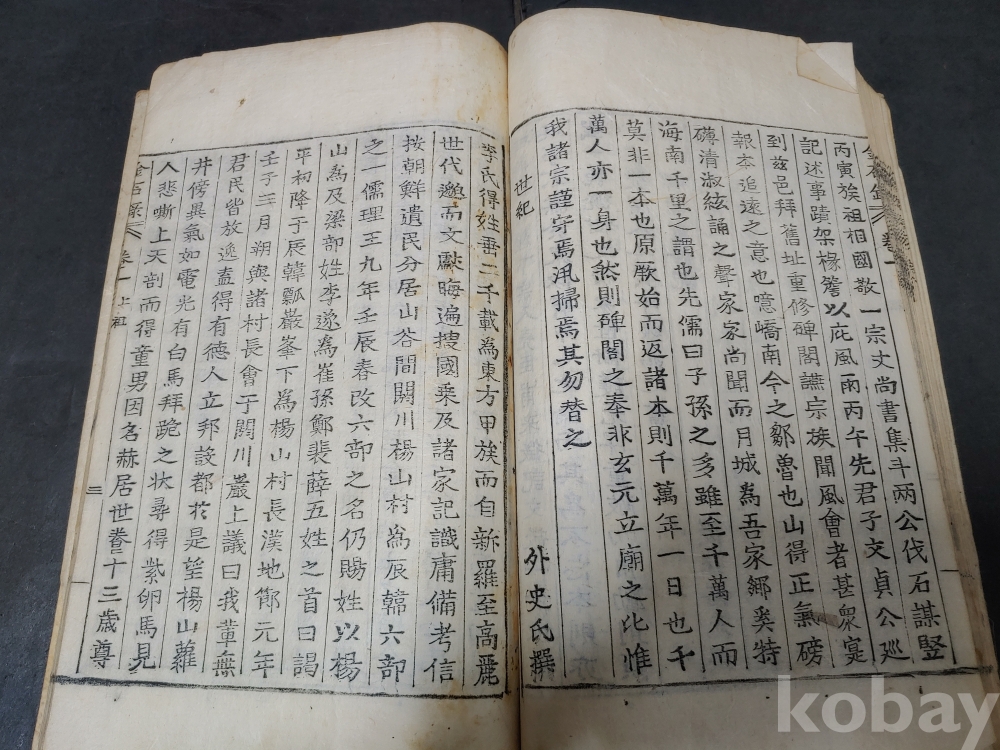 丙寅族祖相國敬一宗丈尚書集斗兩公伐石謀竪
記述事蹟架椽簷以庇風雨丙午先君子文貞公廵
到玆邑拜舊址重修碑閣譕宗族聞風會者甚衆寔
報本追遠之意也噫嶠南今之鄒魯也山得正氣磅
礡清淑絃誦之聲家家尚聞而月城為吾家鄕奚特
海南千里之謂也先儒曰子孫之多雖至千萬人而
莫非一本也原厥始而返諸本則千萬年一日也千
萬人亦一身也然則碑閣之奉非玄元立廟之比惟
我諸宗謹守焉汛掃焉其勿替之
外史氏撰
世紀
李氏得姓垂二千載為東方甲族而自新羅至高麗
世代邈而文獻晦遍搜國乗及諸家記識庸備考信
按朝鮮遺民分居山谷間閼川楊山村為辰韓六部
之一儒理王九年壬辰春改六部之名仍賜姓以楊
山為及梁部姓李遂為崔孫鄭裴薛五姓之首曰謁
平初降于辰韓瓢巖峯下為楊山村長漢地節元年
壬子三月朔與諸村長會于閼川巖上議曰我輩無
君民皆放逸盍得有德人立邦設都於是望楊山蘿
井傍異氣如電光有白馬拜跪之状尋得紫卵馬見
人悲嘶上天剖而得童男因名赫居世養十三歲尊
卷一
上祖
三
kobay